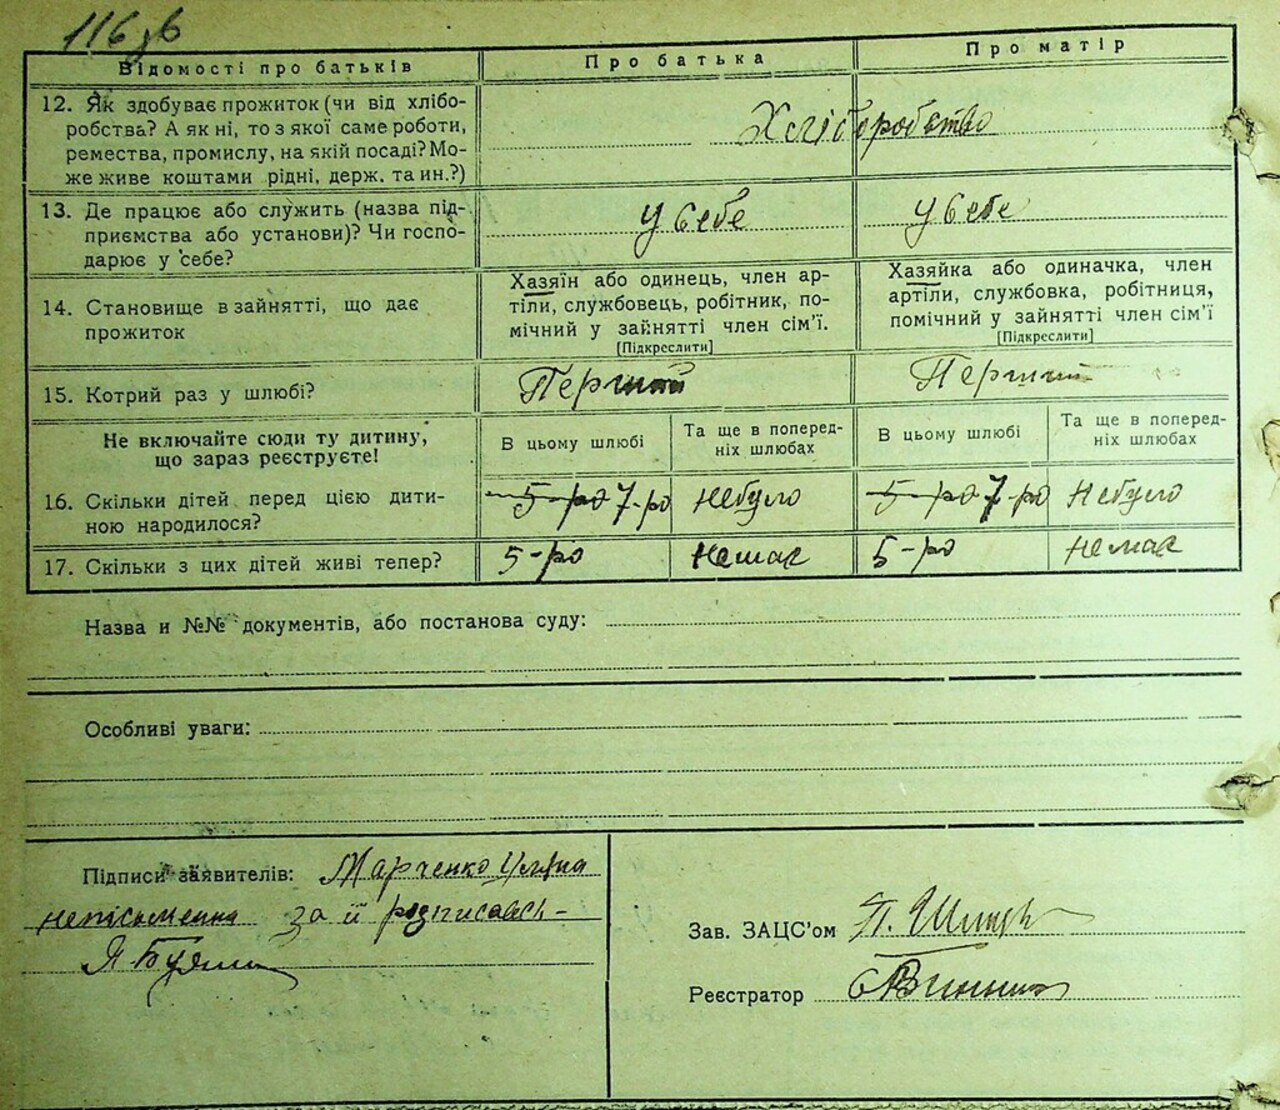 116 зв
Відомості про батьків
Про батька
Про матір
12. Як здобуває прожиток (чи від хлібо-
робства? А як ні, то з якої саме роботи,
ремества, промислу, на якій посаді? Мо-
же живе коштами рідні, держ. та ин.?)
Хліборобство
13. Де працює або служить (назва під-
приємства або установи)? Чи госпо-
дарює у себе?
у себе
у себе
14. Становище в зайнятті, що дає
прожиток
Хазяїн або одинець, член ар-
тіли, службовець, робітник, по-
мічний у зайнятті член сім'ї.
[Підкреслити]
Хазяйка або одиначка, член
артіли, службовка, робітниця,
помічний у зайнятті член сім'ї
[Підкреслити]
15. Котрий раз у шлюбі?
Перший
Перший
Не включайте сюди ту дитину,
що зараз реєструєте!
В цьому шлюбі
Та ще в поперед-
ніх шлюбах
В цьому шлюбі
Та ще в поперед-
ніх шлюбах
16. Скільки дітей перед цією дити-
ною народилося?
5-ро 7-ро
небуло
5-ро 7-ро
небуло
17. Скільки з цих дітей живі тепер?
5-ро
немає
5-ро
немає
Назва и №№ документів, або постанова суду:
Особливі уваги:
Підписи заявителів: Марченко
неписьменна за її розписавсь-
Я
Зав. ЗАЦС'ом П.
Реєстратор